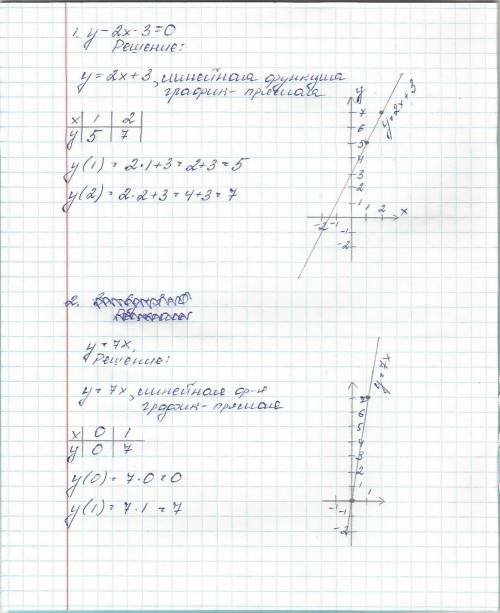 1. y - 2x - 3 = 0
Решение:
y = 2x + 3, линейная функция
график - прямая
x | 1 | 2
y | 5 | 7
y(1) = 2·1+3 = 2+3 = 5
y(2) = 2·2+3 = 4+3 = 7
y
7
6
5
4
3
2
1
-2 -1 1 2 x
-1
-2
y = 2x + 3
2.
y = 7x,
Решение:
y = 7x, линейная ф-я
график - прямая
x | 0 | 1
y | 0 | 7
y(0) = 7·0 = 0
y(1) = 7·1 = 7
7
6
5
4
3
2
1
-1 1
-1
-2
y = 7x